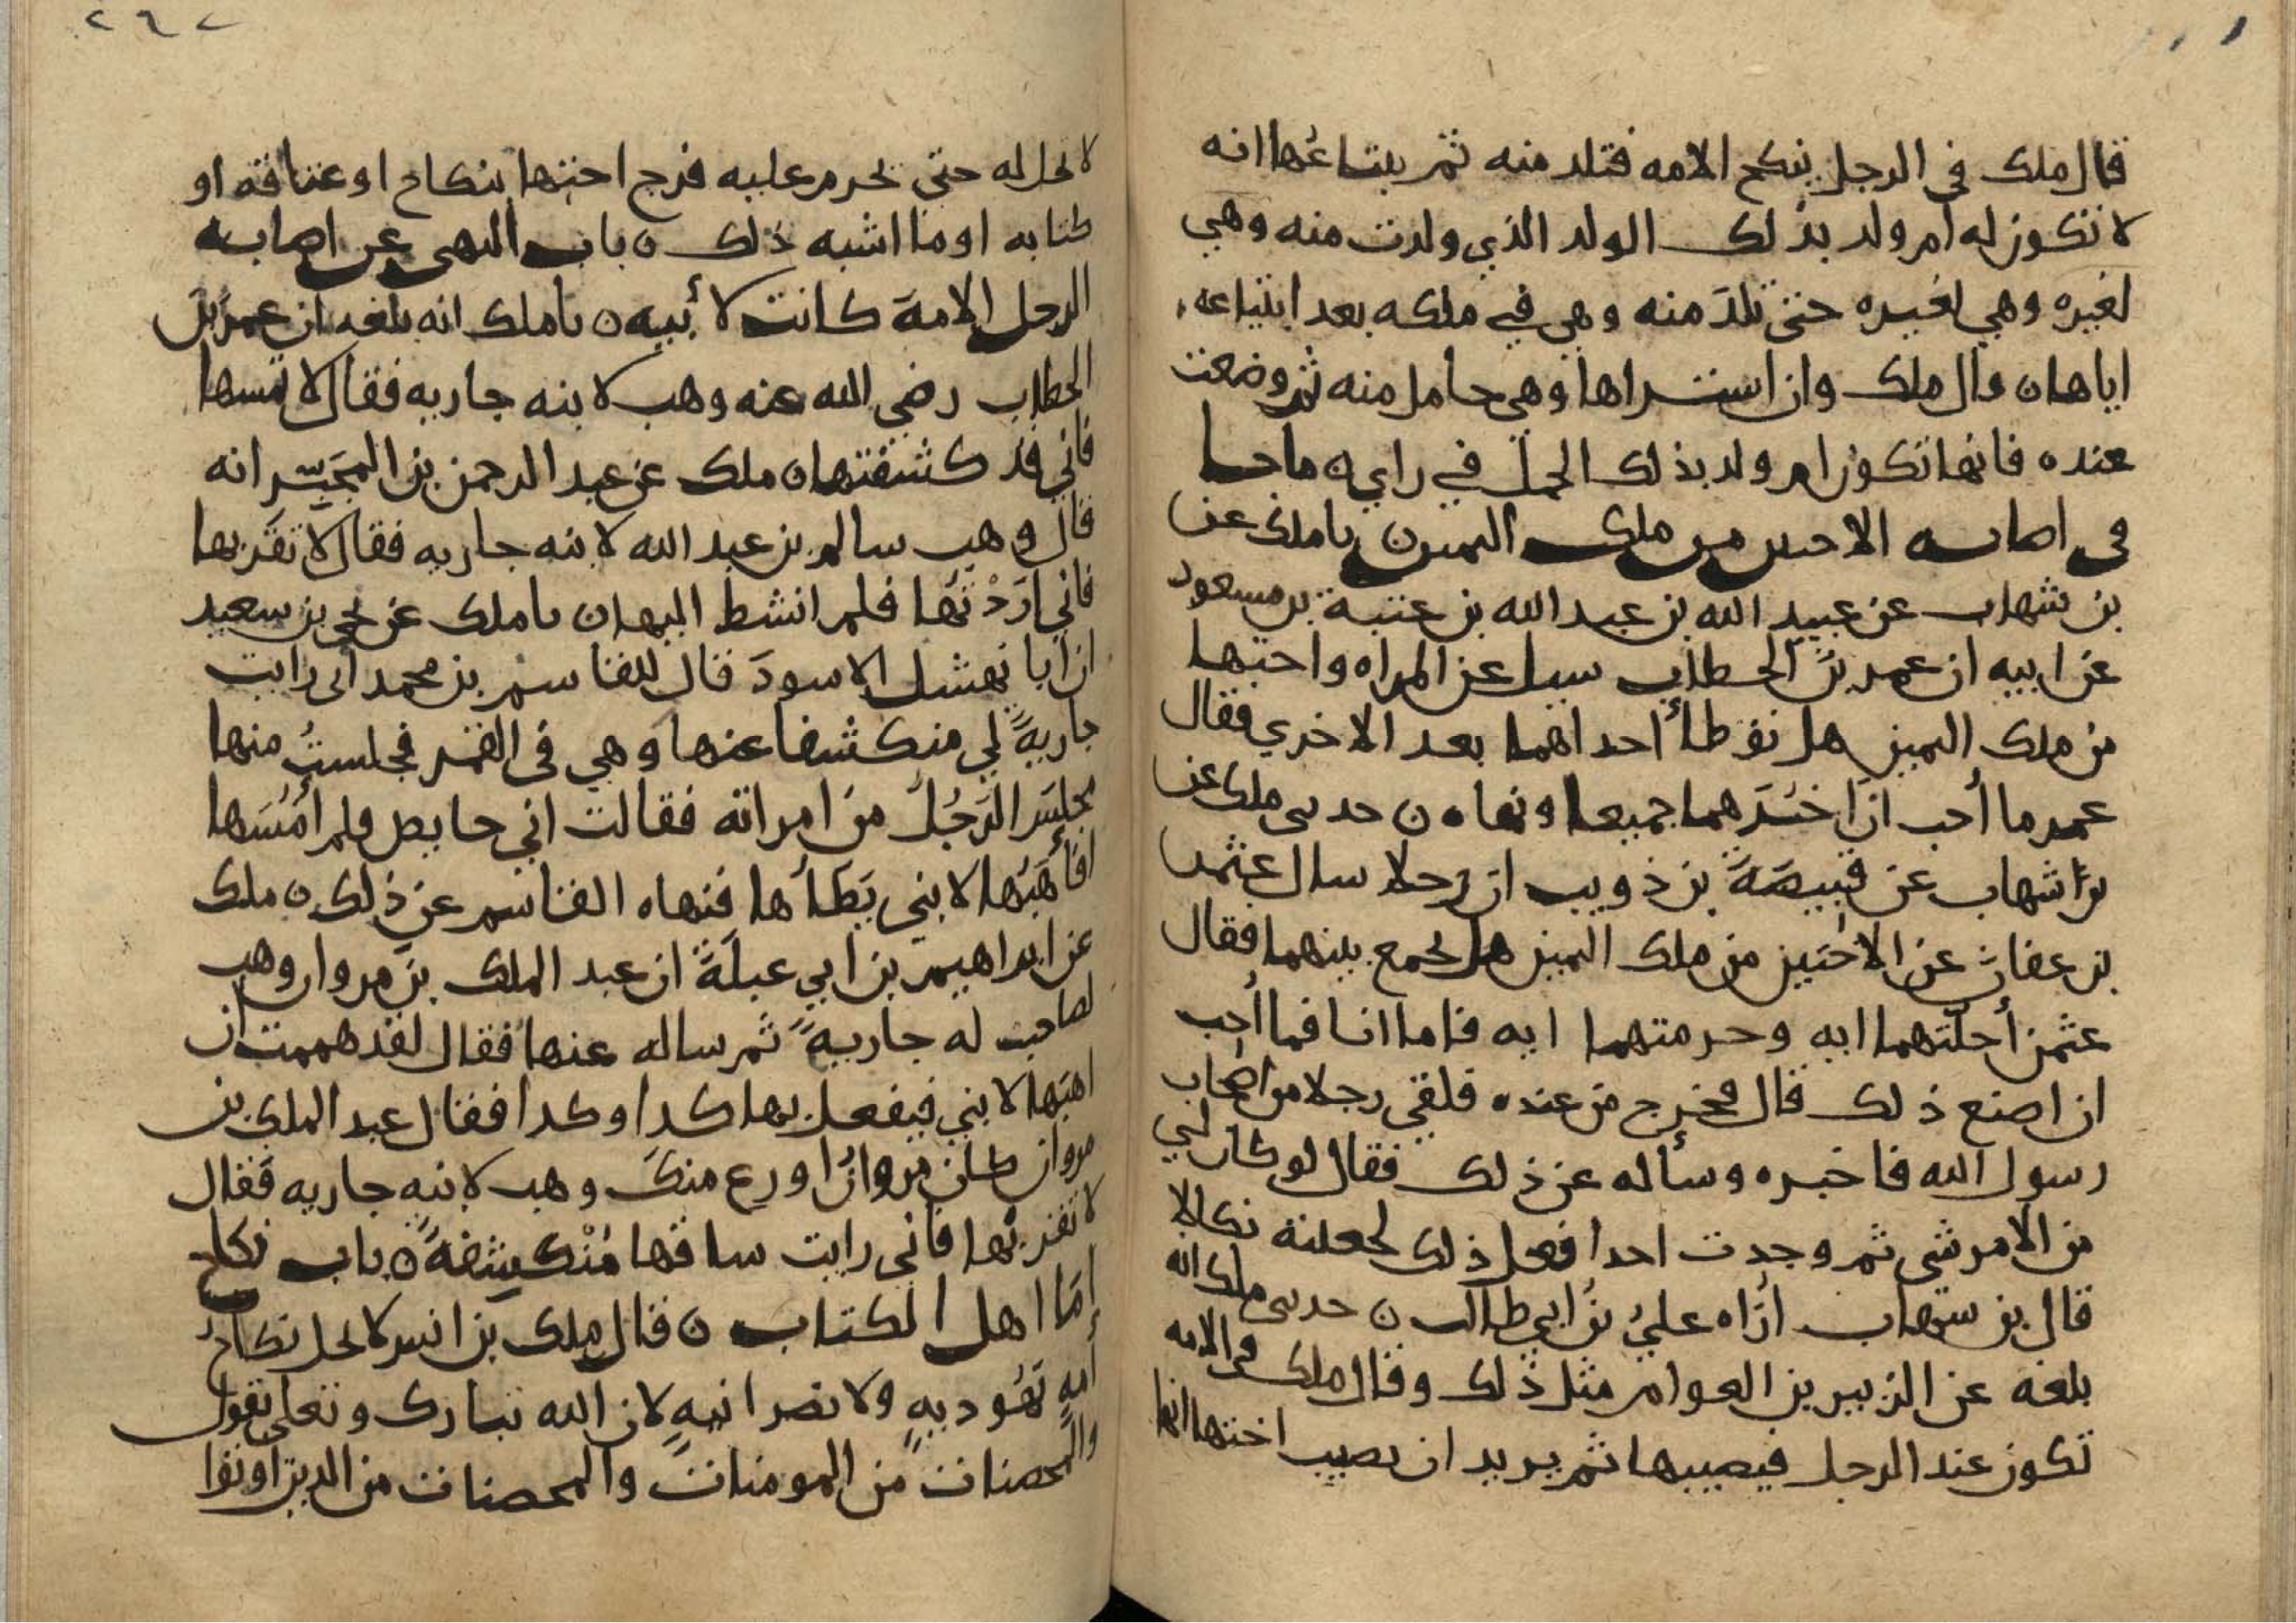 قال ملك في الرجل ينكح الامه فتلد منه ثم يبتاعها انه
لا تكون له ام ولد بذلك الولد الذي ولدت منه وهي
لغيره وهي لغيره حتى تلد منه وهي في ملكه بعد ابتياعه
اياها ن قال ملك وان استراها وهي حامل منه ثم وضعت
عنده فانها تكون ام ولد بذلك الحمل في راي ن ما جا
في اصابه الاختين من ملك اليمين ن نا ملك عن
بن شهاب عن عبيد الله بن عبد الله بن عتبة بن مسعود
عن ابيه ان عمر بن الخطاب سيل عن المراه واختها
من ملك اليمين هل توطأ احداهما بعد الاخري فقال
عمر ما أحب ان اخبرهما جميعا ونهاه ن حدثني ملك عن
بن شهاب عن قبيصة بن ذويب ان رجلا سال عثمن
بن عفان عن الاختين من ملك اليمين هل يجمع بينهما فقال
عثمن أحلتهما ايه وحرمتهما ايه فاما انا فما أحب
ان اصنع ذلك قال فخرج من عنده فلقي رجلا من اصحاب
رسول الله فاخبره وسأله عن ذلك فقال لو كان لي
من الامر شي ثم وجدت احدا فعل ذلك لجعلته نكالا
قال بن شهاب أراه علي بن ابي طالب ن حدثني ملك انه
بلغه عن الزبير بن العوام مثل ذلك وقال ملك في الامه
تكون عند الرجل فيصيبها ثم يريد ان يصيب اختها انها
٢٦٧
لا تحل له حتى يحرم عليه فرج اختها بنكاح او عتاقه او
كتابه او ما اشبه ذلك ن باب النهي عن اصابه
الرجل الامة كانت لأبيه ن نا ملك انه بلغه ان عمر بن
الخطاب رضي الله عنه وهب لابنه جاريه فقال لا تمسها
فاني قد كشفتها ن ملك عن عبد الرحمن بن المجبر انه
قال وهب سالم بن عبد الله لابنه جاريه فقال لا تقربها
فاني اردتها فلم انشط اليها ن نا ملك عن يحي بن سعيد
ان ابا نهشل الاسود قال للقاسم بن محمد اني رايت
جارية لي منكشفا عنها وهي في القمر فجلست منها
مجلس الرجل من امراته فقالت اني حايض فلم أمسها
افأهبها لابني يطأها فنهاه القاسم عن ذلك ن ملك
عن ابراهيم بن ابي عبلة ان عبد الملك بن مروان وهب
لصاحب له جارية ثم ساله عنها فقال لقد هممت ان
اهبها لابني فيفعل بها كدا وكدا فقال عبد الملك بن
مروان كان مروان اورع منك وهب لابنه جاريه فقال
لا تقربها فاني رايت ساقها منكشفة ن باب نكاح
إما اهل الكتاب ن قال ملك بن انس لا يحل نكاح
أمه يهوديه ولا نصرانيه لان الله تبارك وتعلى يقول
والمحصنات من المومنات والمحصنات من الدين اوتوا